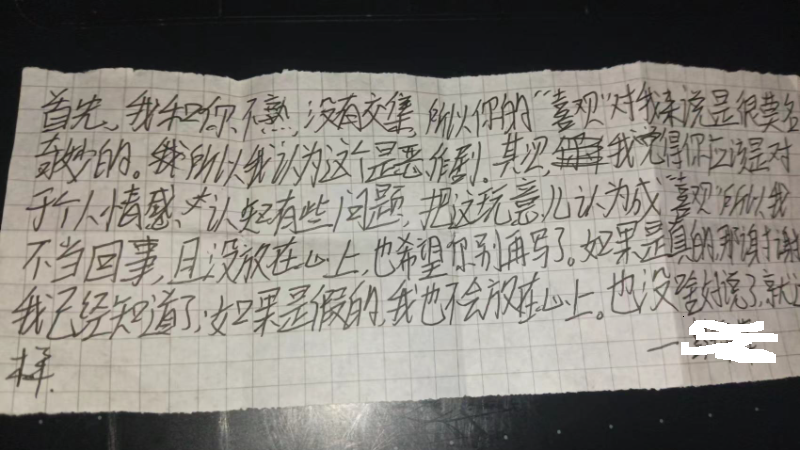 首先、我和你不熟,没有交集,所以你的"喜观"对我来说是很莫名
奇妙的。所以我认为这个是恶作剧。其次,我觉得你应该是对
于个人情感、认知有些问题,把这玩意儿认为成"喜观"所以我
不当回事,且没放在心上,也希望你别再写了。如果是真的,那谢谢
我已经知道了,如果是假的,我也不会放在心上。也没啥好说了,就这
样.